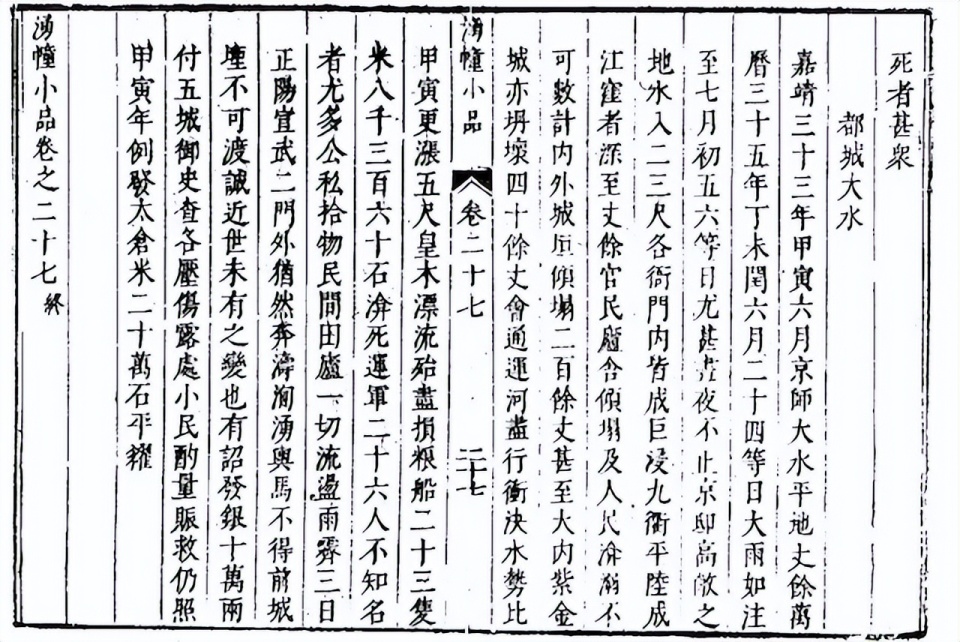 死者甚衆
都城大水
嘉靖三十三年甲寅六月京師大水平地丈餘萬
曆三十五年丁未閏六月二十四等日大雨如注
至七月初五六等日尤甚晝夜不止京邸高敞之
地水入二三尺各衙門內皆成巨浸九衢平陸成
江窪者深至丈餘官民廬舍傾塌及人民渰溺不
可數計內外城垣傾塌二百餘丈甚至大內紫金
城亦坍壞四十餘丈會通運河盡行衝決水勢比
湧幢小品 卷二十七 二十七
甲寅更漲五尺皇木漂流殆盡損粮船二十三隻
米八千三百六十石渰死運軍二十六人不知名
者尤多公私拾物民間田廬一切流盪雨霽三日
正陽宣武二門外猶然奔濤洶湧輿馬不得前城
堙不可渡誠近世未有之變也有詔發銀十萬兩
付五城御史查各壓傷露處小民酌量賑救仍照
甲寅年例發太倉米二十萬石平糶
湧幢小品卷之二十七 終